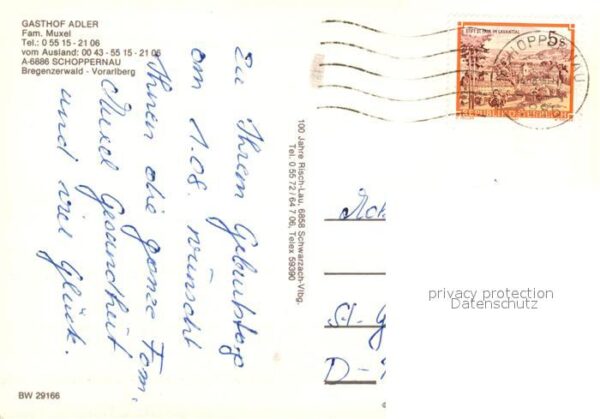 GASTHOF ADLER
Fam. Muxel
Tel.: 0 55 15 - 21 06
vom Ausland: 00 43 - 55 15 - 21 06
A-6886 SCHOPPERNAU
Bregenzerwald - Vorarlberg
Zu Ihrem Geburtstag
am 1.08. wünscht
Ihnen die ganze Fam.
Muxel Gesundheit
und viel Glück.
BW 29166
100 Jahre Risch-Lau, 6858 Schwarzach-Vlbg.
Tel. 0 55 72 / 64 7 06, Telex 59390
STIFT ST. PAUL IM LAVANTTAL
5S
REPUBLIK ÖSTERREICH
SCHOPPERNAU
St-G
D-
privacy protection
Datenschutz